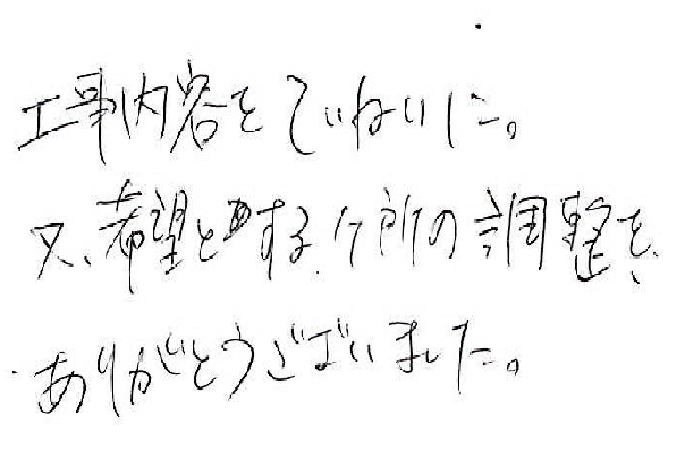 工事内容をていねいに。
又、希望とする、ケ所の調整を、
ありがとうございました。